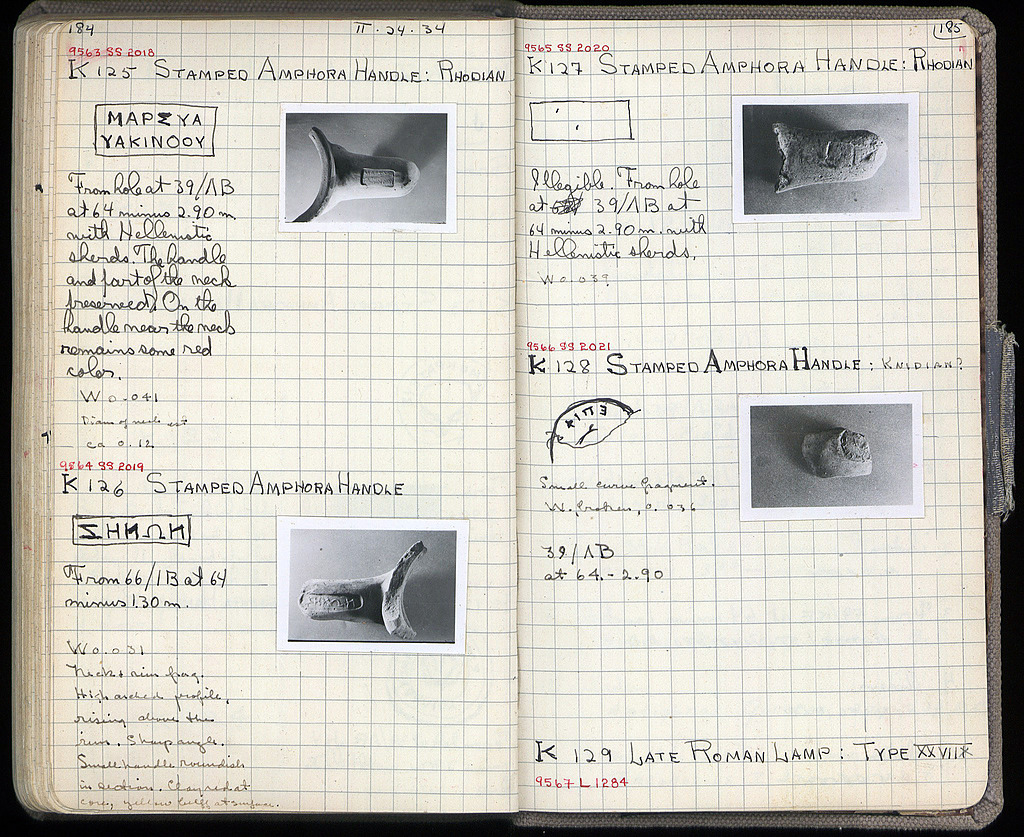 184
II · 24 · 34
9563 SS 2018
K 125 STAMPED AMPHORA HANDLE: RHODIAN
ΜΑΡΣΥΑ
ΥΑΚΙΝΘΟΥ
From hole at 39/ΛΒ
at 64 minus 2.90 m.
with Hellenistic
sherds. The handle
and part of the neck
preserved. On the
handle near the neck
remains some red
color.
W 0.041
Diam of neck est
ca 0.12
9564 SS 2019
K 126 STAMPED AMPHORA HANDLE
ΣΗΜΩΗ
From 66/ΙΒ at 64
minus 1.30 m.
W 0.031
Neck & rim frag.
High arched profile,
rising above the
rim. Sharp angle.
Small handle roundish
in section. Clay red at
core, yellow buff at surface.
185
9565 SS 2020
K 127 STAMPED AMPHORA HANDLE: RHODIAN
Illegible. From hole
at 39/ΛΒ at
64 minus 2.90 m. with
Hellenistic sherds,
W 0.039
9566 SS 2021
K 128 STAMPED AMPHORA HANDLE: KNIDIAN?
ΕΠΙΚ
Small curve fragment.
W. broken, 0.036
39/ΛΒ
at 64.-2.90
K 129 LATE ROMAN LAMP: TYPE XXVIII
9567 L 1284